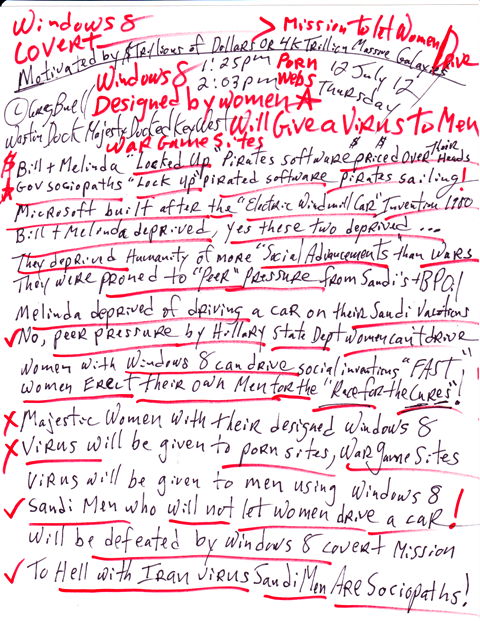 Windows 8
Covert
> Mission to let Women Drive
Motivated by $Trillions of Dollars or 4K Trillion Massive Galaxies
Windows 8 1:25pm Porn 12 July 12
2:03pm Webs Thursday
Designed by women
© Greg Buell
Westin Dock Majesty Docked Key West Will Give a Virus to Men
War Game Sites
$ Bill + Melinda "Locked Up" Pirates software priced over their Heads
Gov sociopaths "Lock up" pirated software pirates sailing!
Microsoft built after the "Electric Windmill Car" Invention 1980
Bill + Melenda deprived, yes these two deprived ...
They deprived Humanity of more "Social Advancements" than wars
They were proned to "Peer" pressure from Sandi's + BP Oil
Melinda deprived of driving a car on their Sandi Vacations
✓ No, peer pressure by Hillary State Dept women can't drive
Women with Windows 8 can drive social inventions "FAST"
Women Erect their own Men for the "Race for the Cures"!
X Majestic Women with their designed Windows 8
X Virus will be given to porn sites, War game sites
Virus will be given to men using Windows 8
✓ Sandi Men who will not let women drive a car!
will be defeated by windows 8 covert Mission
✓ To Hell with Iran virus Sandi Men Are Sociopaths!